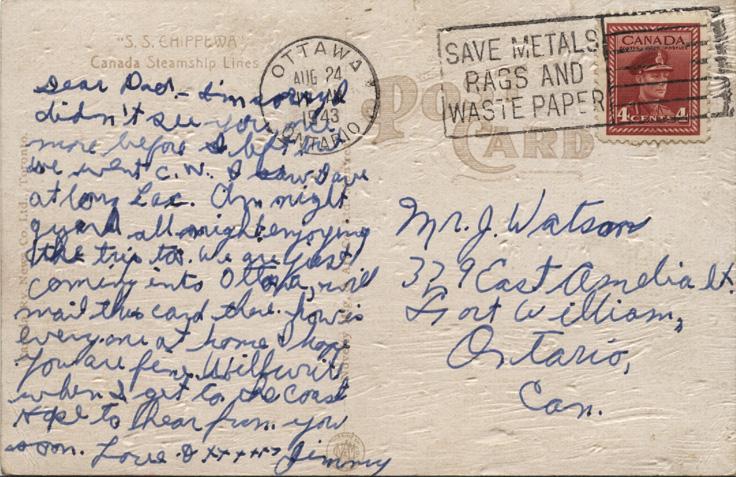 "S. S. CHIPPEWA"
Canada Steamship Lines
Dear Dad. - I'm sorry I
didn't see you
more before I left
We went C.N. I saw Dave
at Long Lac. Am night
guard all night enjoying
the trip to. We are just
coming into Ottawa, will
mail this card there. how is
everyone at home I hope
you are fine. Will write
when I get to the coast
Hope to hear from you
soon. Love &
Jimmy
POST
CARD
OTTAWA
AUG 24
1943
ONTARIO
SAVE METALS
RAGS AND
WASTE PAPER
CANADA
4 CENTS 4
Mr. J. Watson
329 East Amelia St.
Fort William,
Ontario,
Can.